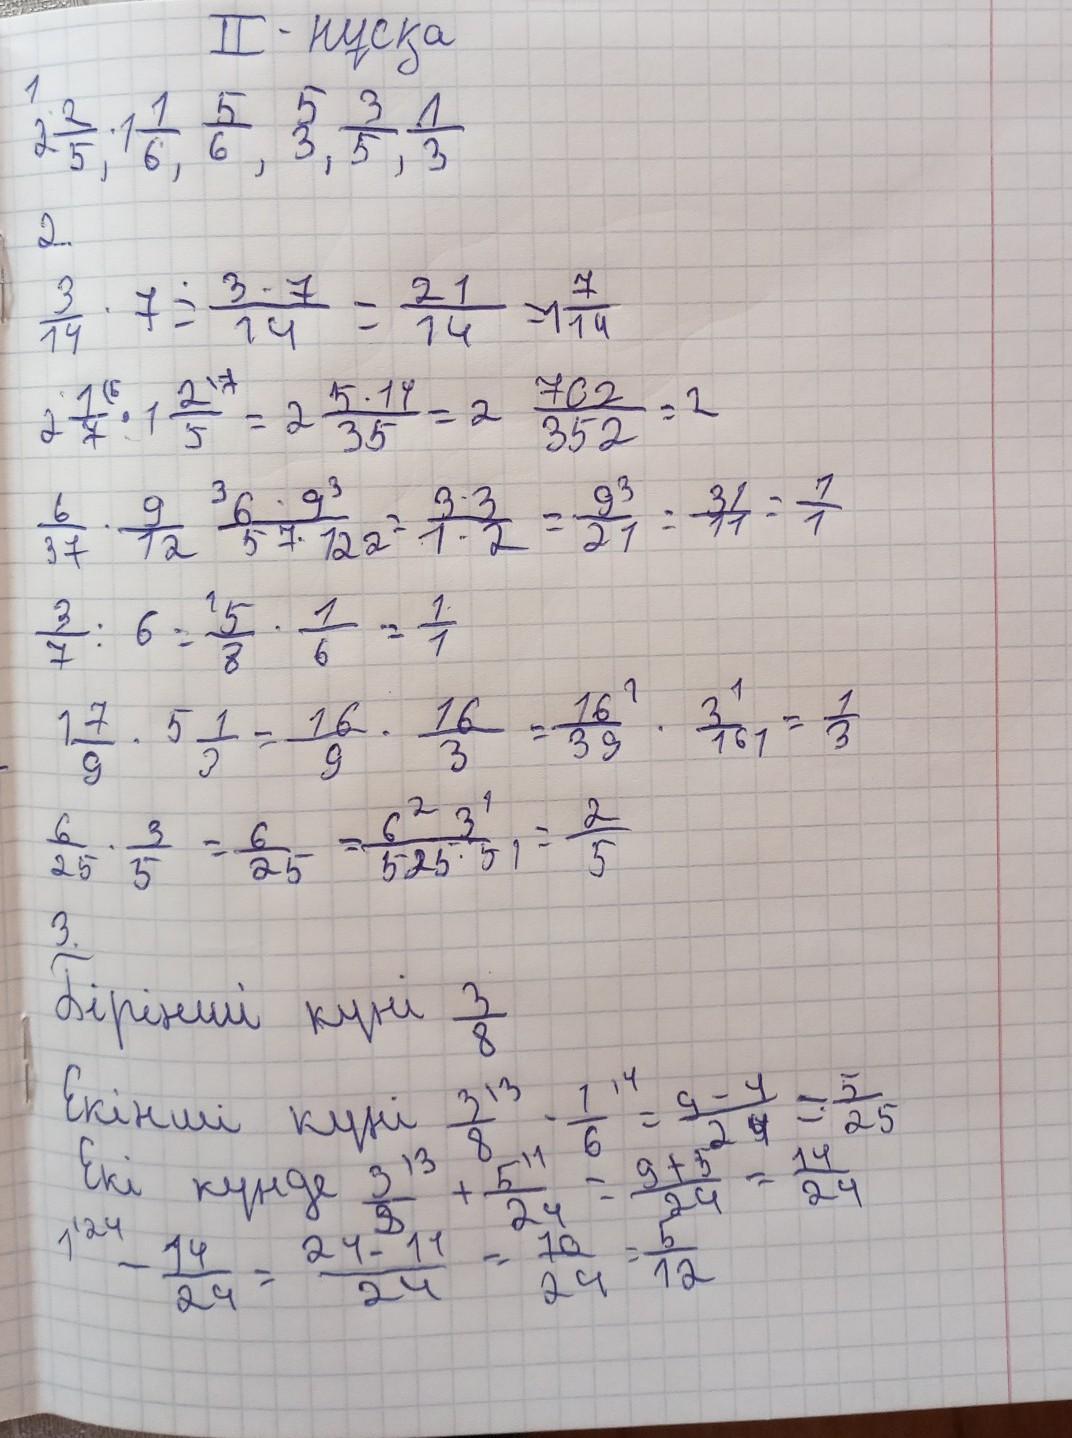 II - нұсқа
1
2 2/5, 1 1/6, 5/6, 5 3, 3/5, 1/3
2.
3/14 · 7 = 3·7/14 = 21/14 = 1 7/14
2 1/7 · 1 2/5 = 2 5·14/35 = 2 702/352 = 2
6/37 · 9/12 3 6·9 3/57·12 2 = 3·3/1·2 = 9 3/21 = 31/11 = 1/1
3/7 : 6 = 1 5/8 · 1/6 = 1/1
1 7/9 · 5 1/3 = 16/9 · 16/3 = 16 1/39 · 3 1/16 1 = 1/3
6/25 · 3/5 = 6/25 = 6 2 3 1/525·5 1 = 2/5
3.
Бірінші күні 3/8
Екінші күні 3/8 \3 - 1/6 \4 = 9-4/24 = 5/25
Екі күнде 3/8 \3 + 5/24 \1 = 9+5/24 = 14/24
1 \24 - 14/24 = 24-14/24 = 10/24 = 5/12